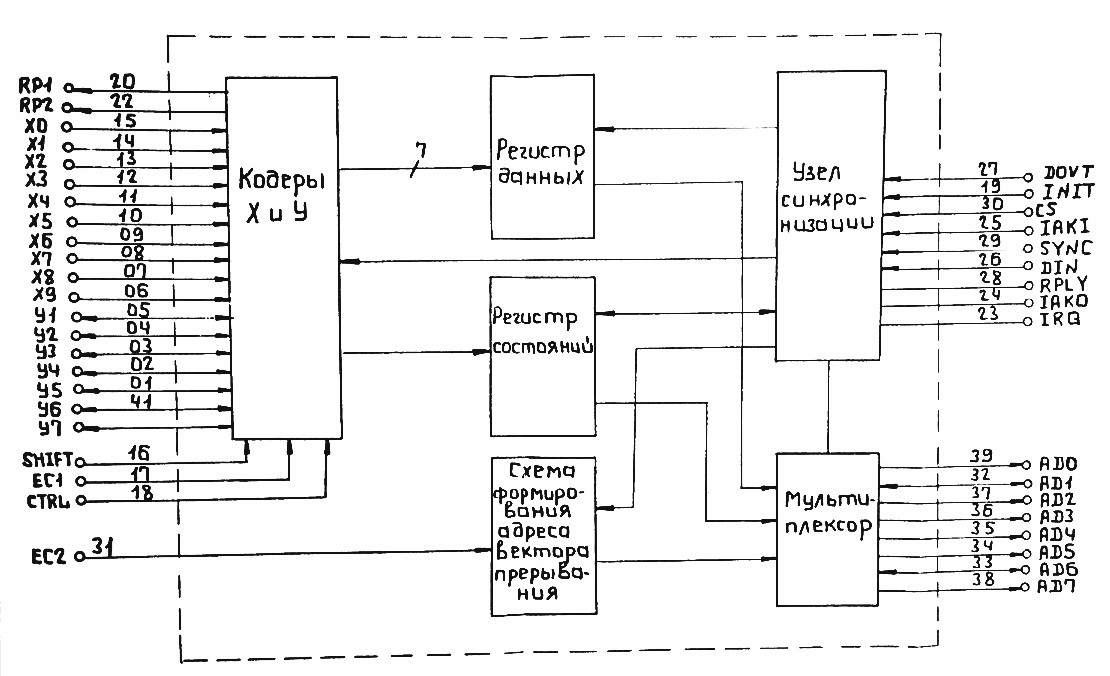 RP1 20
RP2 22
X0 15
X1 14
X2 13
X3 12
X4 11
X5 10
X6 09
X7 08
X8 07
X9 06
У1 05
У2 04
У3 03
У4 02
У5 01
У6 41
У7
SHIFT 16
EC1 17
CTRL 18
EC2 31
Кодеры
X и У
7
Регистр
данных
Регистр
состояний
Схема
формиро-
вания
адреса
вектора
прерыва-
ния
Узел
синхро-
низации
Мульти-
плексор
27 DOUT
19 INIT
30 CS
25 IAKI
29 SYNC
26 DIN
28 RPLY
24 IAKO
23 IRQ
39 AD0
32 AD1
37 AD2
36 AD3
35 AD4
34 AD5
33 AD6
38 AD7